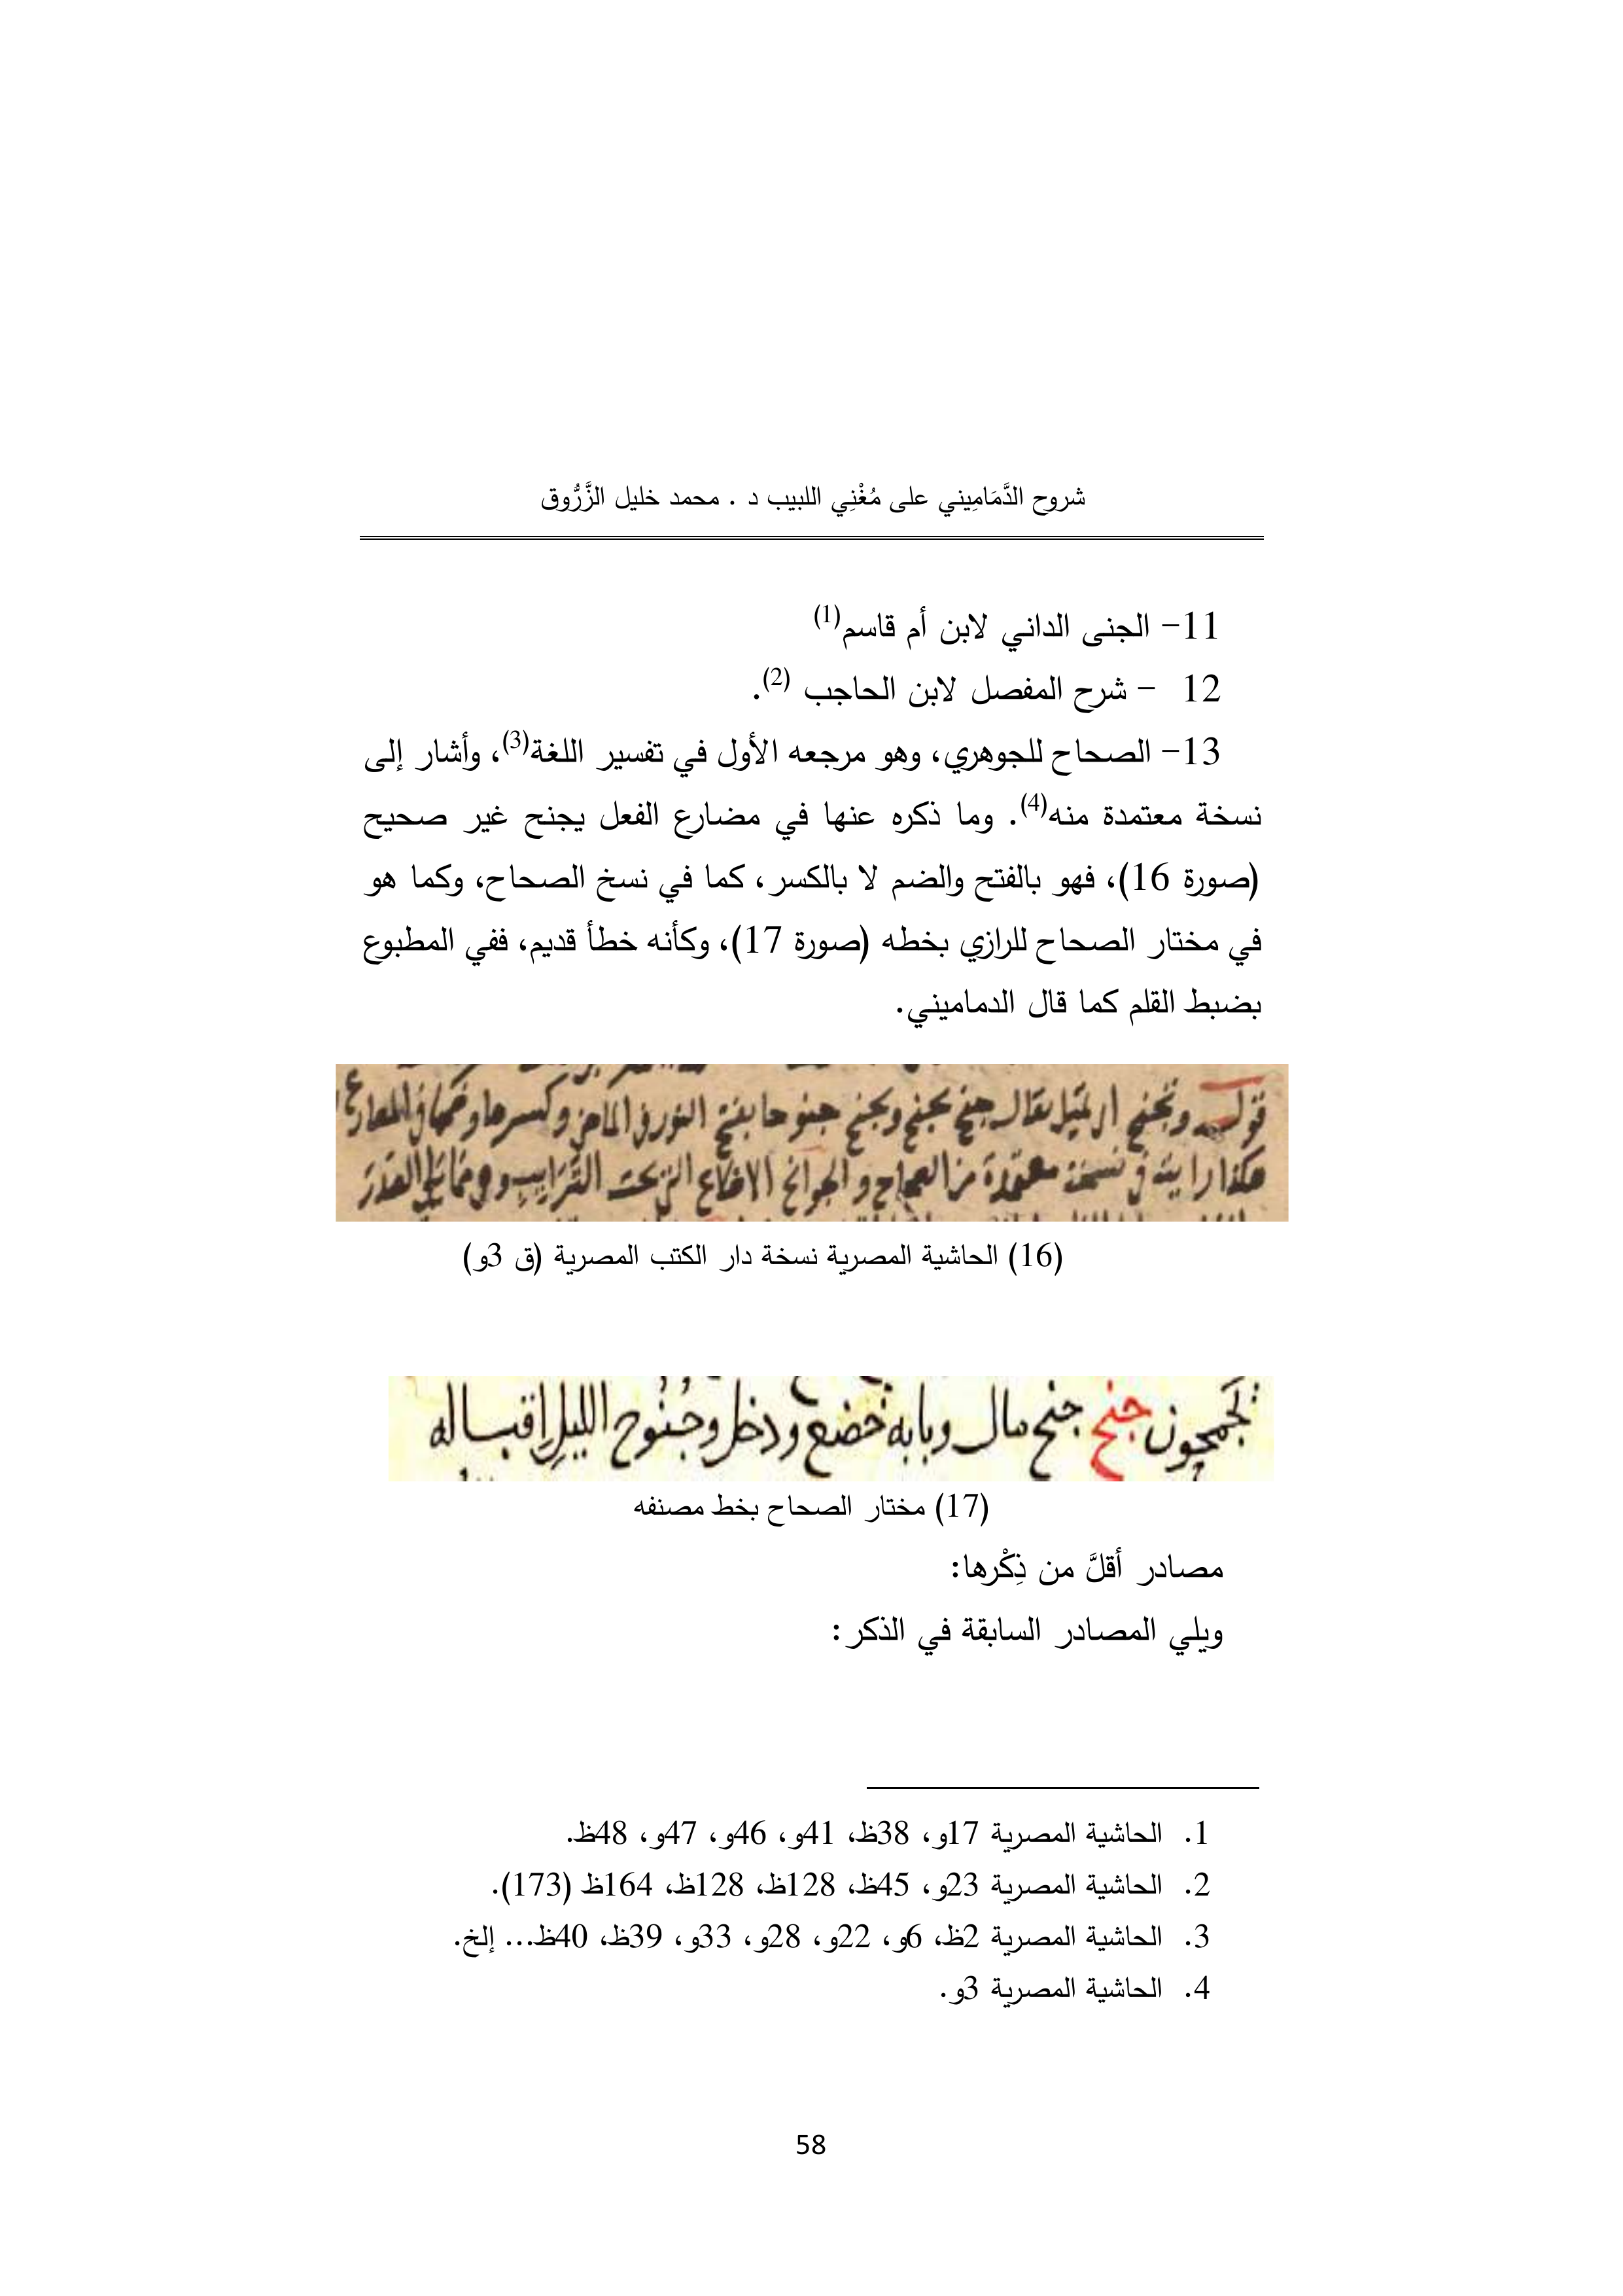 شروح الدَّمَامِيني على مُغْنِي اللبيب د . محمد خليل الزَّرُّوق
11- الجنى الداني لابن أم قاسم(1)
12 - شرح المفصل لابن الحاجب (2).
13- الصحاح للجوهري، وهو مرجعه الأول في تفسير اللغة(3)، وأشار إلى
نسخة معتمدة منه(4). وما ذكره عنها في مضارع الفعل يجنح غير صحيح
(صورة 16)، فهو بالفتح والضم لا بالكسر، كما في نسخ الصحاح، وكما هو
في مختار الصحاح للرازي بخطه (صورة 17)، وكأنه خطأ قديم، ففي المطبوع
بضبط القلم كما قال الدماميني.
قوله وتجنح اي تميل يقال جنح يجنح ويجنح جنوحا بفتح النون في الماضي وكسرها وضمها في المضارع
هكذا رايته في نسخة معتمدة من الصحاح والجوانح الاضلاع التي تحت الترايب وهي مما يلي الصدر
(16) الحاشية المصرية نسخة دار الكتب المصرية (ق 3و)
يجمحون جنح جنح مال وبابه خضع ودخل وجُنُوح الليل إقباله
(17) مختار الصحاح بخط مصنفه
مصادر أقلَّ من ذِكْرها:
ويلي المصادر السابقة في الذكر:
1. الحاشية المصرية 17و، 38ظ، 41و، 46و، 47و، 48ظ.
2. الحاشية المصرية 23و، 45ظ، 128ظ، 128ظ، 164ظ (173).
3. الحاشية المصرية 2ظ، 6و، 22و، 28و، 33و، 39ظ، 40ظ... إلخ.
4. الحاشية المصرية 3و.
58